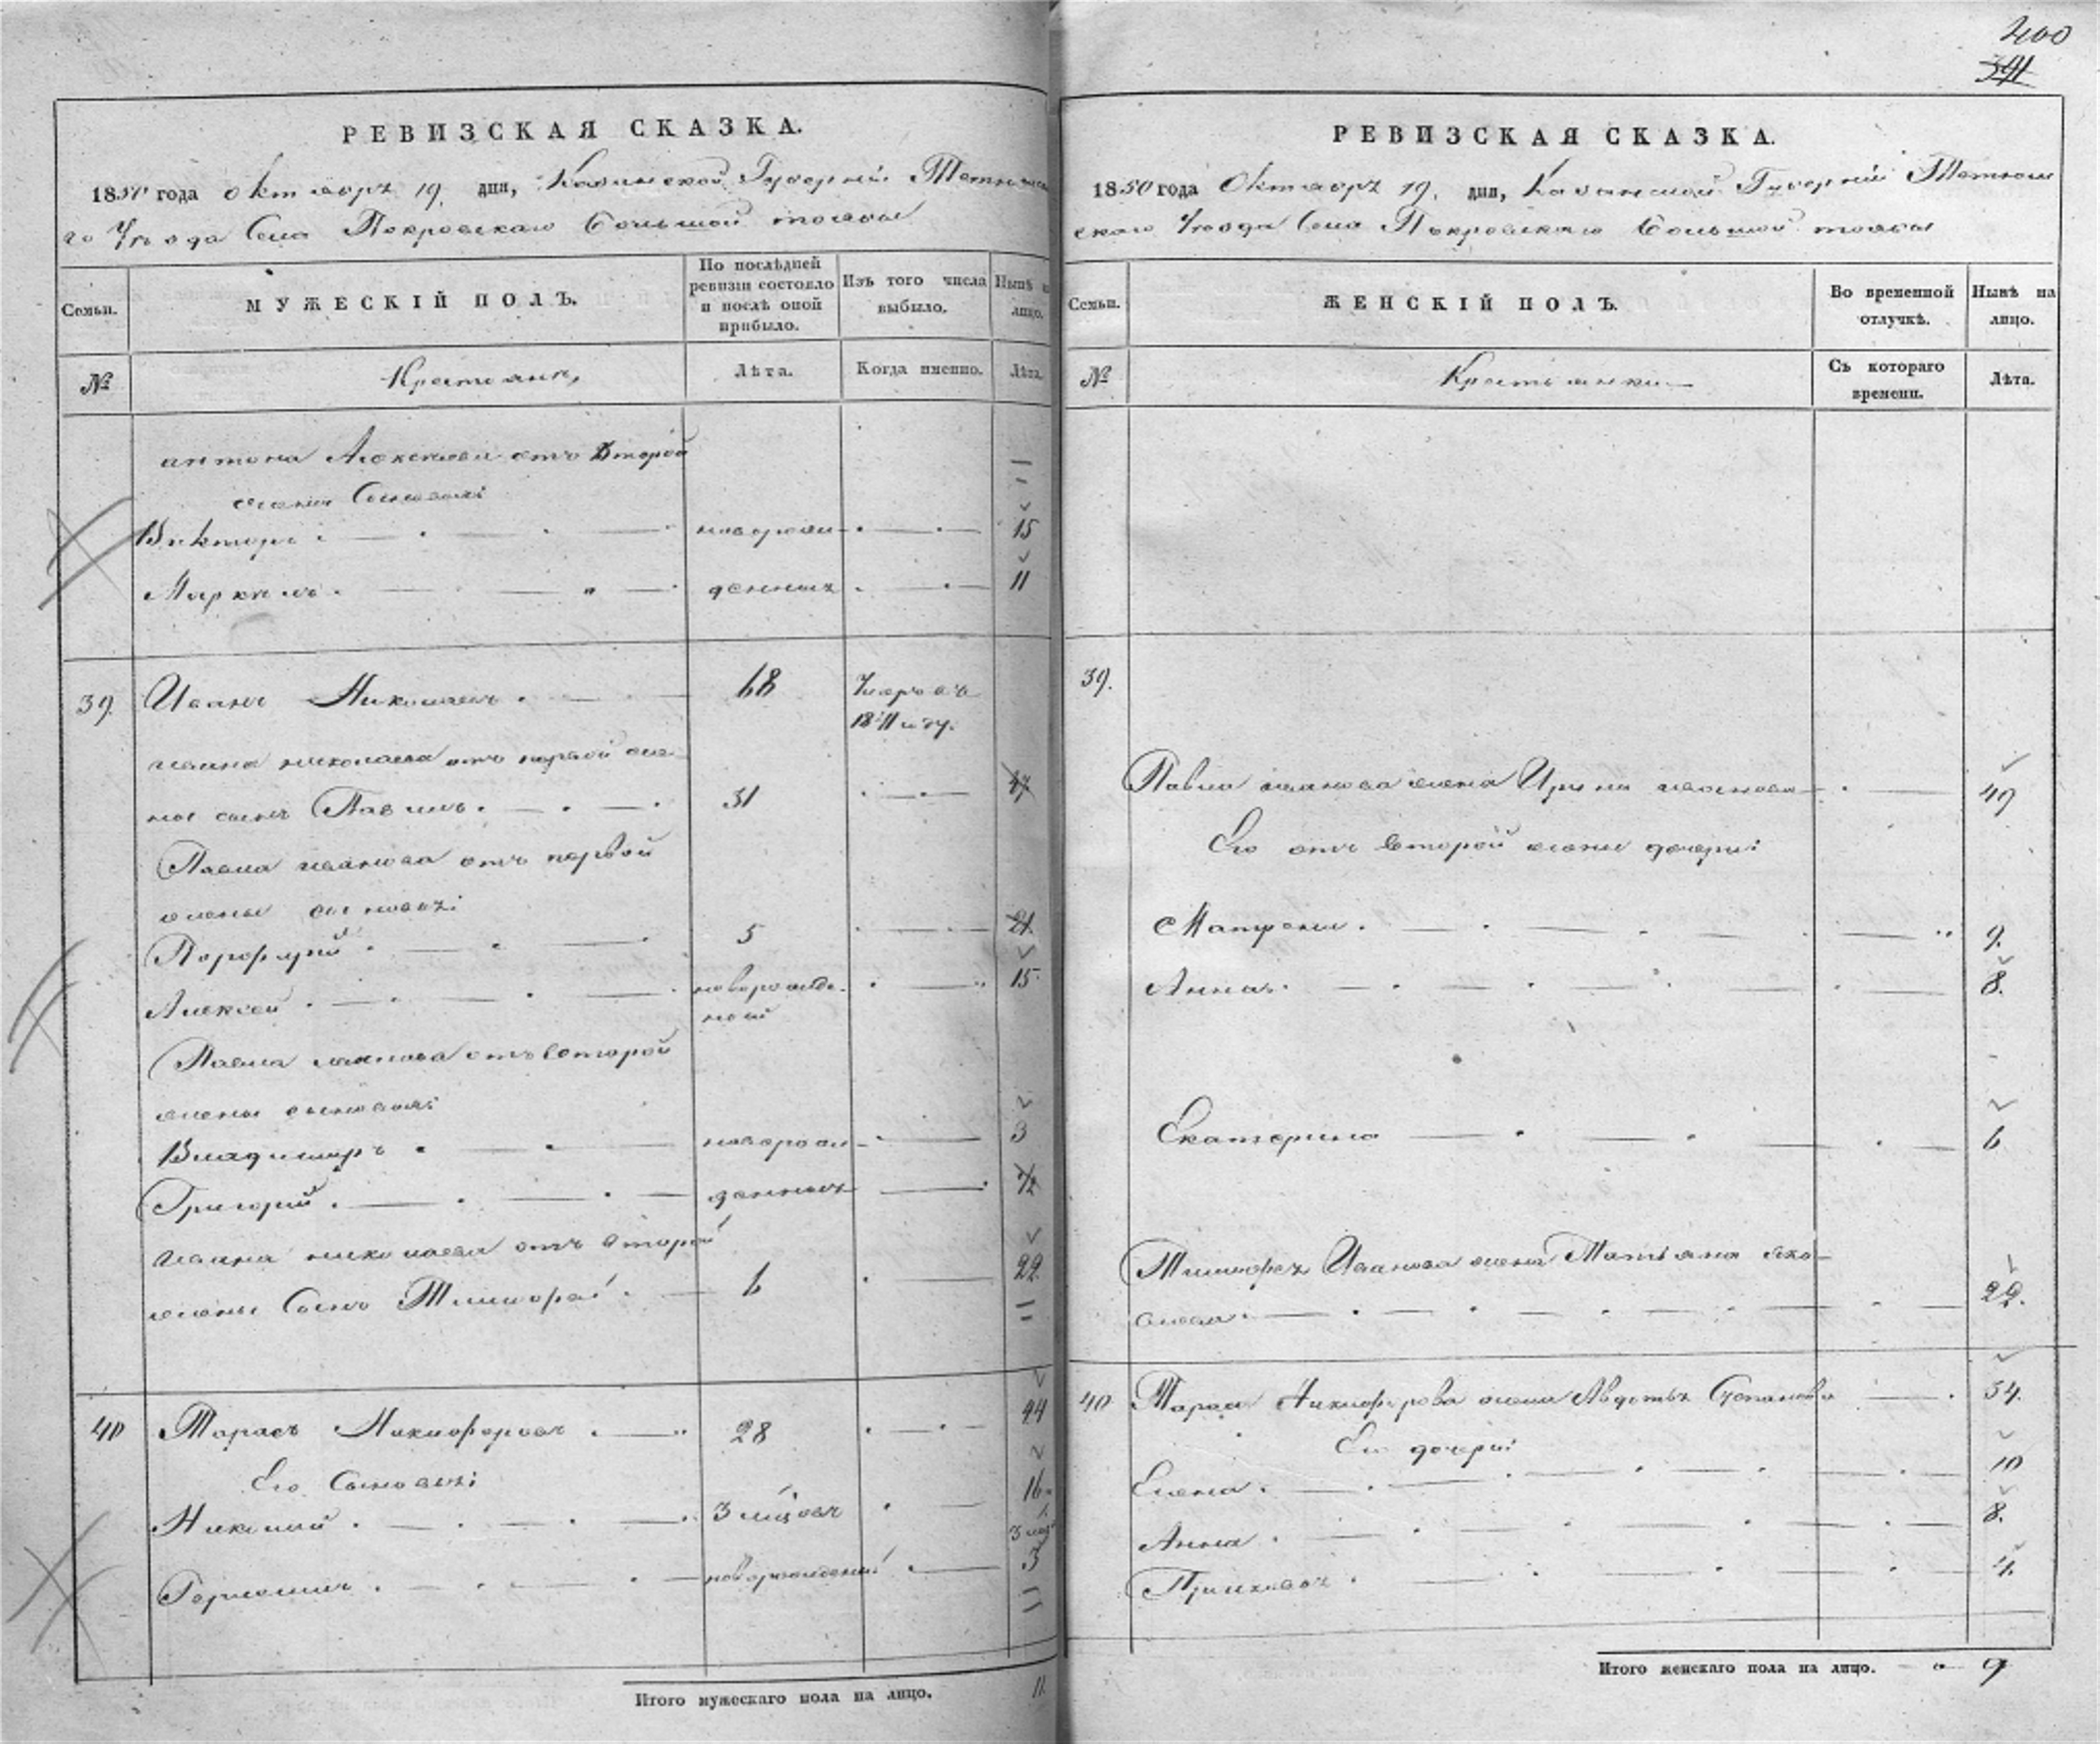 РЕВИЗСКАЯ СКАЗКА.
1850 года октября 19 дня, Казанской Губернiи Тетюшска
го Уѣзда Села Покровскаго Большой тожъ
Семьи.
МУЖЕСКІЙ ПОЛЪ.
По послѣдней ревизіи состояло и послѣ оной прибыло.
Изъ того числа выбыло.
Нынѣ на лицо.
№
Крестьяне,
Лѣта.
Когда именно.
Лѣта.
антона Алексѣева отъ Второй
жены Сыновья:
Викторъ новорож 15
Маркелъ денныхъ 11
39. Иванъ Николаевъ 68 Умеръ въ
18 году.
ивана николаева отъ первой же
ны сынъ Павелъ 31 47
Павла иванова отъ первой
жены сыновья:
Порфирiй 5 21
Алексѣй новорожде 15
ной
Павла иванова отъ второй
жены сыновья:
Владимиръ новорож 3
Григорiй денныхъ 1/2
ивана николаева отъ второй
жены Сынъ Тимофей 6 22
40 Тарасъ Никифоровъ 28 44
Его Сыновья:
Николай 3 мѣсяцовъ 16
3 мѣс
новорожденный 3
Итого мужескаго пола на лицо. 11.
400
391
РЕВИЗСКАЯ СКАЗКА.
1850 года Октября 19, дня, Казанской Губернiи Тетюш
скаго Уѣзда Села Покровскаго Большой тожъ
Семьи.
ЖЕНСКІЙ ПОЛЪ.
Во временной отлучкѣ.
Нынѣ на лицо.
№
Крестьянки
Съ котораго времени.
Лѣта.
39.
Павла иванова жена Ирина иванова 49
Его отъ второй жены дочери:
Матрена 9.
Анна 8.
Екатерина 6
Тимофея Иванова жена Татьяна яко
влева 22.
40 Тараса Никифорова жена Авдотья Степанова 54.
Его дочери:
Елена 10
Анна 8.
4.
Итого женскаго пола на лицо. 9